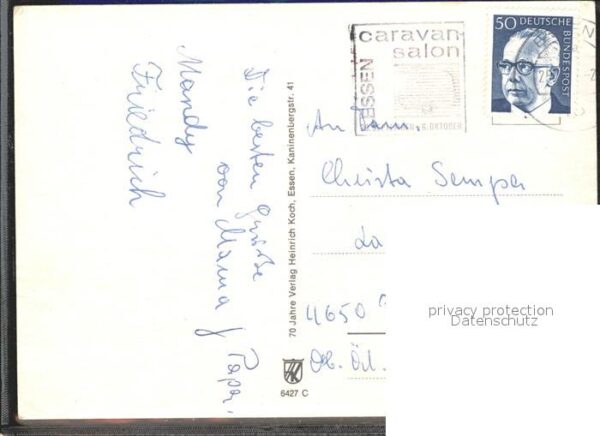 Die besten Grüße
von Mama & Papa,
Mandy
Friedrich
70 Jahre Verlag Heinrich Koch, Essen, Kaninenbergstr. 41
6427 C
caravan
salon
ESSEN
6. OKTOBER
50 DEUTSCHE
BUNDESPOST
An Fam.
Christa Semper
La
4650
Ob. Örl.
privacy protection
Datenschutz